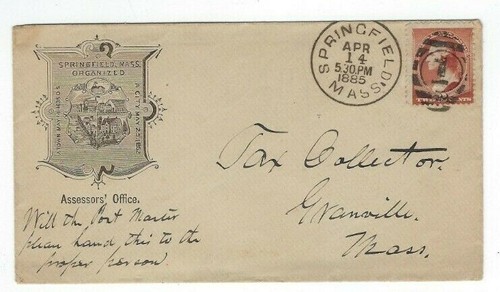 SPRINGFIELD, MASS.
ORGANIZED
A TOWN MAY 14 1636
A CITY MAY 25 1852
Assessors' Office.
Will the Post Master
please hand, this to the
proper person.
SPRINGFIELD
APR
14
5 30 PM
1885
MASS.
TWO CENTS
1
Tax Collector.
Granville.
Mass.